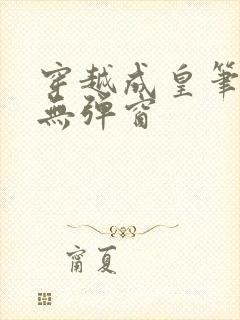 穿越成皇筆
無彈窗
甯夏